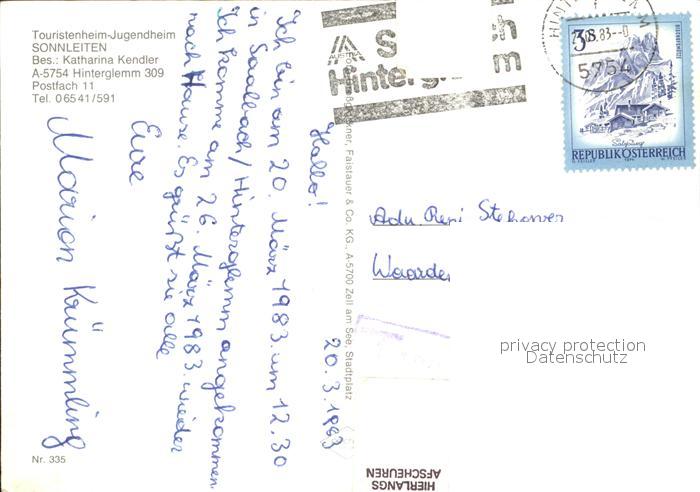 Touristenheim-Jugendheim
SONNLEITEN
Bes.: Katharina Kendler
A-5754 Hinterglemm 309
Postfach 11
Tel. 06541/591
Hallo!
20.3.1983
"Ich bin am 20. März 1983 um 12.30
in Saalbach/Hinterglemm angekommen.
Ich komme am 26. März 1983 wieder
nach Hause. Es grüßt sie alle
Eure
Marion Krümmling
Nr. 335
Falstauer & Co. KG., A-5700 Zell am See, Stadtplatz
AUSTRIA
5754
3 S
Salzburg
REPUBLIK ÖSTERREICH
Waarde
HIERLANGS
AFSCHEUREN
privacy protection
Datenschutz